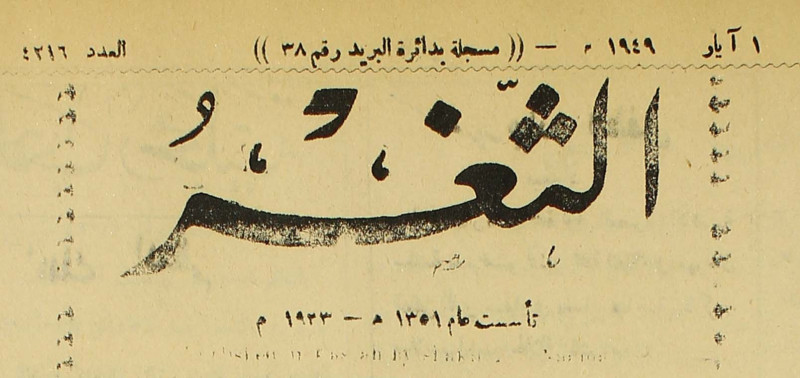 ١ آيار ١٩٤٩ م — (( مسجلة بدائرة البريد رقم ٣٨ )) العدد ٤٢١٦
الثَّغْرُ
تأسست عام ١٣٥١ ه — ١٩٣٣ م